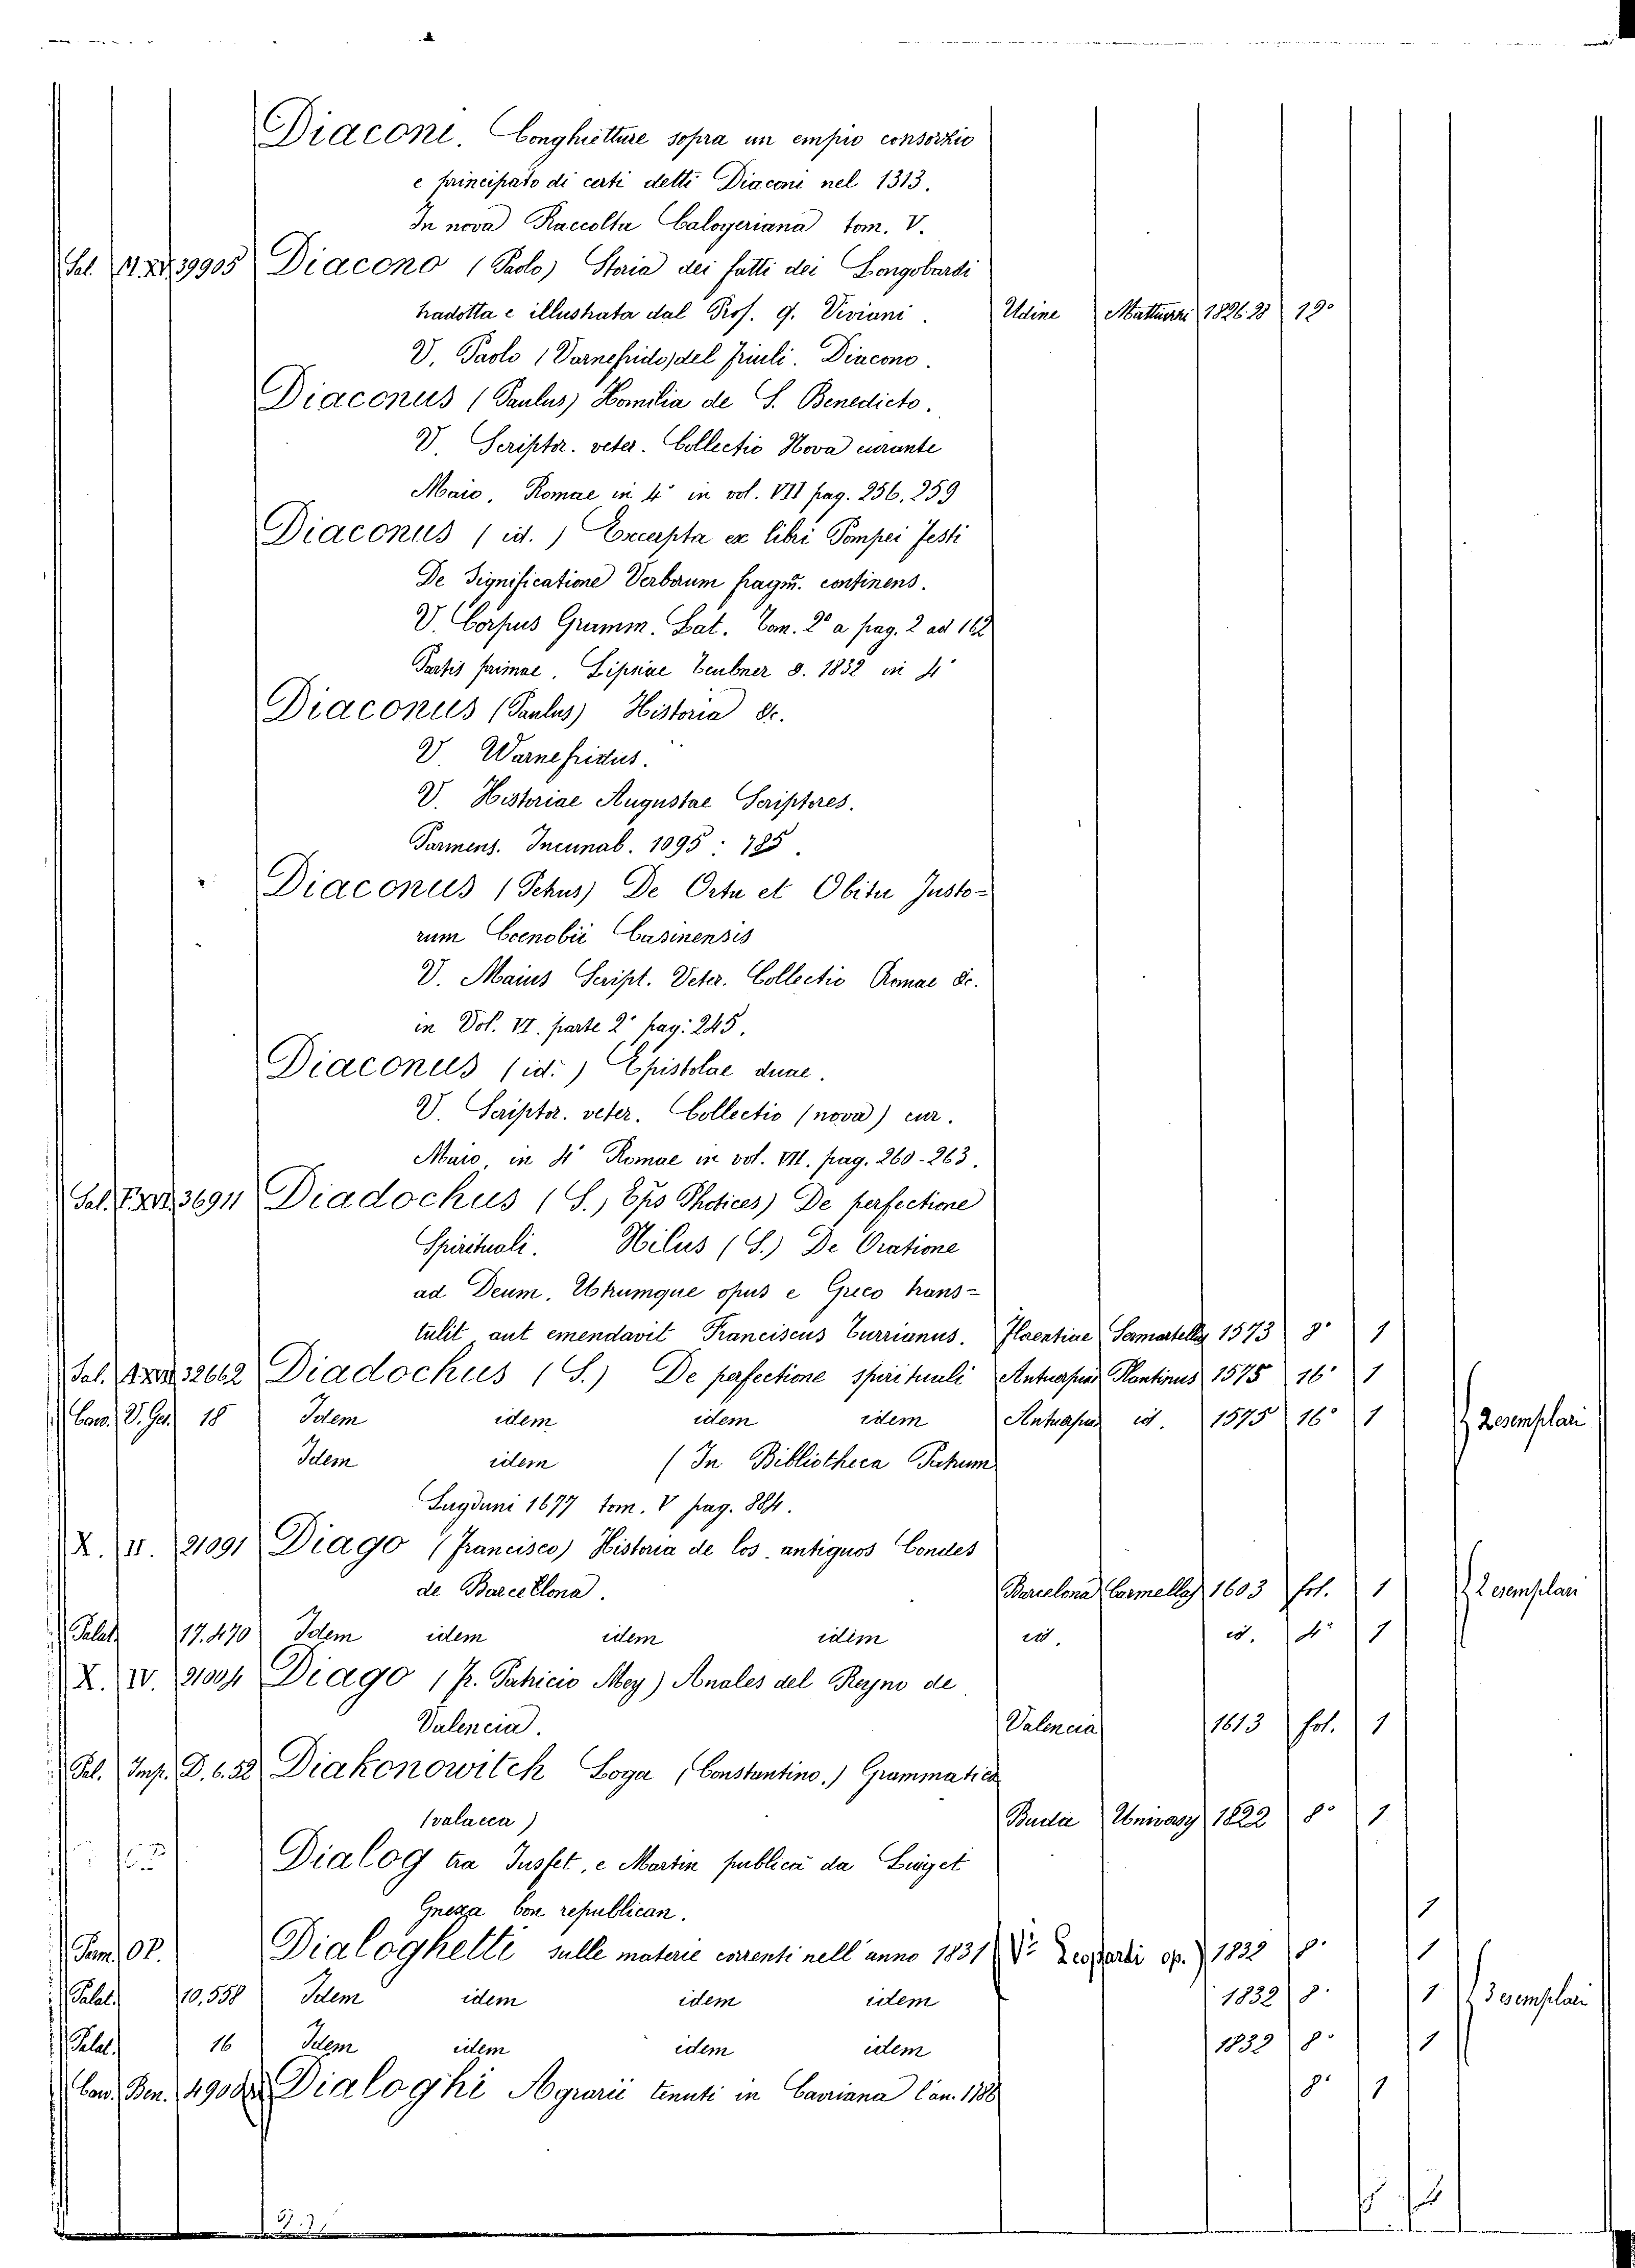 Diaconi. Conghietture sopra un empio consorzio
e principato di certi detti Diaconi nel 1313.
In nova Raccolta Calogeriana tom. V.
Sal. M. XV. 39905 Diacono (Paolo) Storia dei fatti dei Longobardi
tradotta e illustrata dal Prof. Q. Viviani. Udine Mattiuzzi 1826.28 12°
V. Paolo (Varnefrido) del Friuli. Diacono.
Diaconus (Paulus) Homilia de S. Benedicto.
V. Scriptor. veter. Collectio Nova curante
Maio, Romae in 4° in vol. VII pag. 256. 259
Diaconus (id.) Excerpta ex libri Pompei Festi
De Significatione Verborum fragm. continens.
V. Corpus Gramm. Lat. Tom. 2° a pag. 2 ad 162
Partis primae. Lipsiae Teubner 8. 1832 in 4°
Diaconus (Paulus) Historia &c.
V. Warnefridus.
V. Historiae Augustae Scriptores.
Parmens. Incunab. 1095: 785.
Diaconus (Petrus) De Ortu et Obitu Justo-
rum Coenobii Casinensis
V. Maius Script. Veter. Collectio Romae &c.
in Vol. VI. parte 2° pag: 245.
Diaconus (id.) Epistolae duae.
V. Scriptor. veter. Collectio (nova) cur.
Maio, in 4° Romae in vol. VII. pag. 260-263.
Sal. F. XVI. 36911 Diadochus (S., Eps Photices) De perfectione
Spirituali. Nilus (S.) De Oratione
ad Deum. Utrumque opus e Greco trans-
tulit aut emendavit Franciscus Turrianus. Florentiae Sermartelly 1573 8° 1
Sal. 32662 Diadochus (S.) De perfectione spirituali Antuerpiae Plantinus 1575 16° 1
V. Ger. 18 Idem idem idem idem Antuerpiae id. 1575 16° 1 2 esemplari
Idem idem (In Bibliotheca Patrum
Lugduni 1677 tom. V pag. 884.
X. II. 21091 Diago (Francisco) Historia de los antiguos Condes
de Barcellona. Barcelona Cormellas 1603 fol. 1 2 esemplari
Palat. 17.470 Idem idem idem idem id. id. 4° 1
X. IV. 21004 Diago (F. Patricio Mey) Anales del Reyno de
Valencia. Valencia 1613 fol. 1
Pal. Imp. D. 6. 52 Diakonowitch Loga (Constantino.) Grammatica
(valacca) Buda Univasy 1822 8° 1
Dialog tra Jusfet, e Martin publicà da Luiget
Gnezza bon republican. 1
Pam. OP. Dialoghetti sulle materie correnti nell' anno 1831 (V. Leopardi op.) 1832 8° 1
Palat. 10,558 Idem idem idem idem 1832 8° 1 3 esemplari
Palat. 16 Idem idem idem idem 1832 8° 1
Ben. Dialoghi Agrarii tenuti in Cavriana l'an. 1788 8° 1